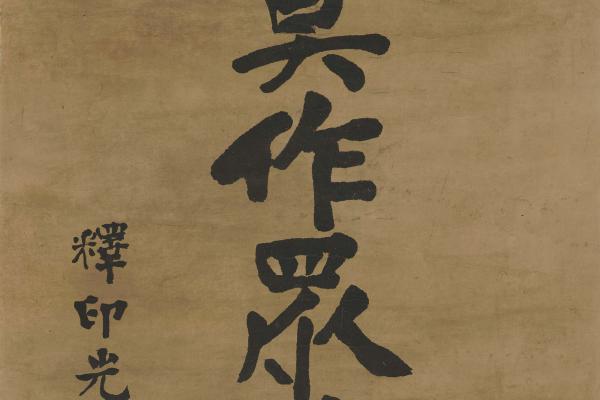 莫作眾
釋印光